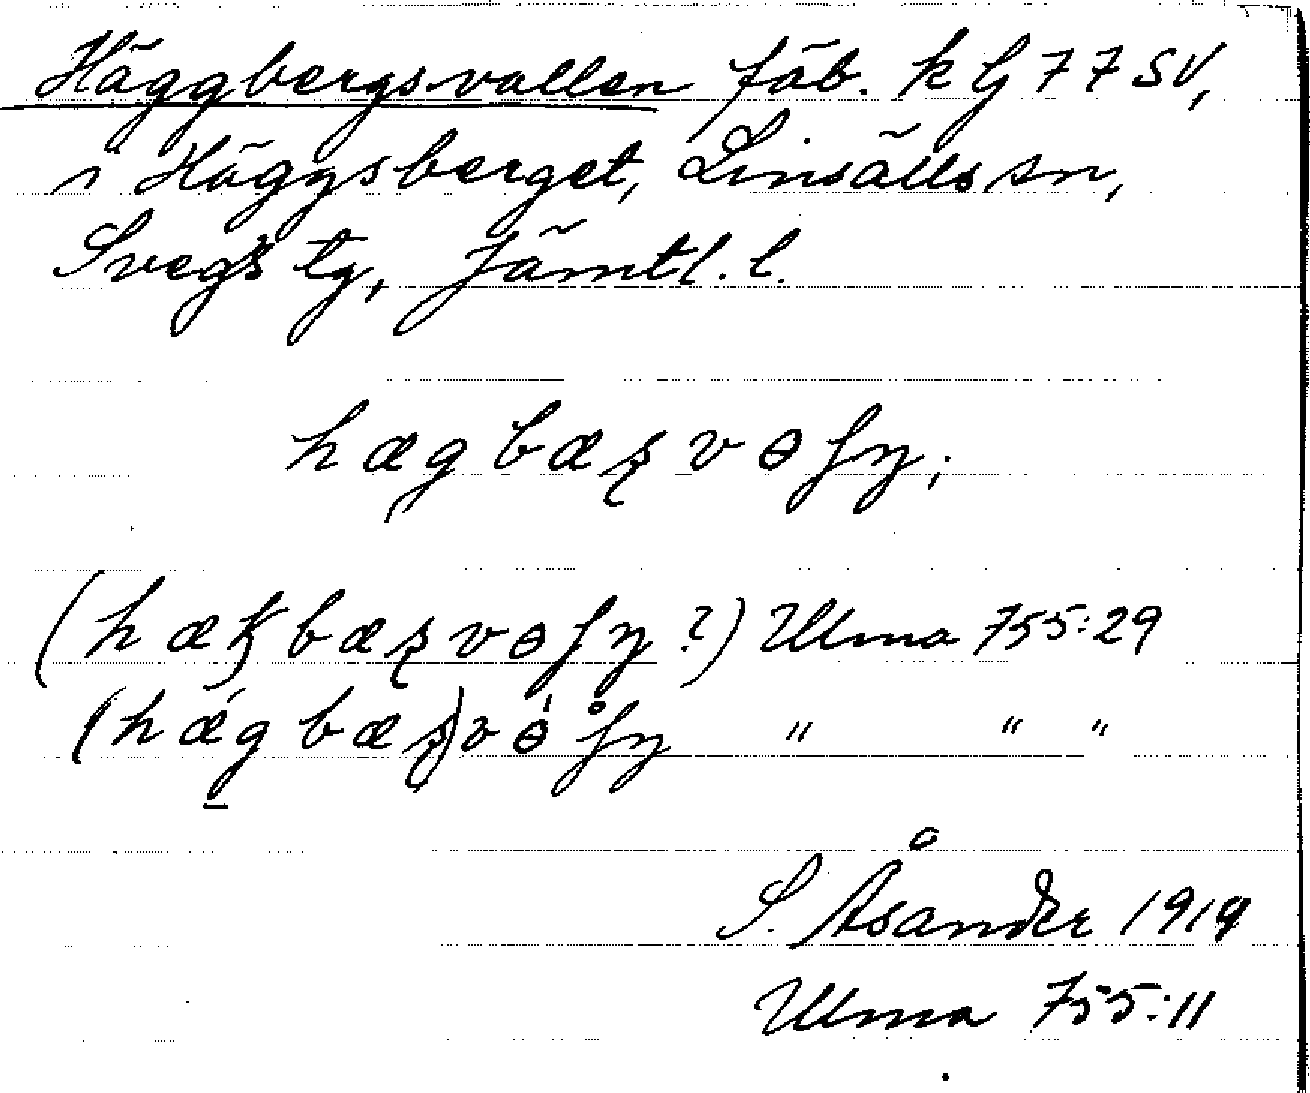 Häggbergsvallen fäb. k G 77 SV,
i Häggsberget, Linsälls sn,
Svegs tg, Jämtl. l.
hægbæʂvɵſn̥;
(hækbæʂvɵſn̥?) Ulma 755:29
(hǽgbæʂ)vɵ́ſn̥ " " "
S. Åsander 1919
Ulma 755:11